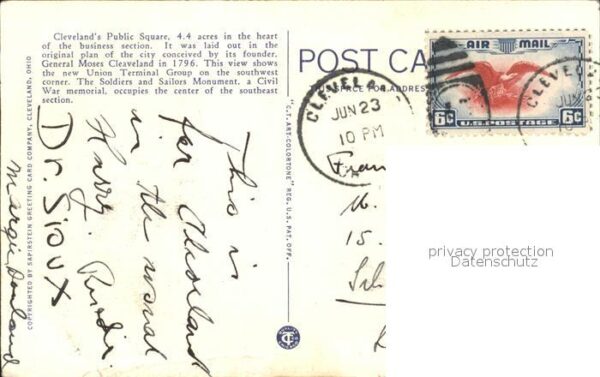 Cleveland's Public Square, 4.4 acres in the heart
of the business section. It was laid out in the
original plan of the city conceived by its founder.
General Moses Cleaveland in 1796. This view shows
the new Union Terminal Group on the southwest
corner. The Soldiers and Sailors Monument, a Civil
War memorial, occupies the center of the southeast
section.
POST CA
THIS SPACE FOR ADDRES
AIR MAIL
6¢ U.S. POSTAGE 6¢
CLEVELA
JUN 23
10 PM
CLEVEL
COPYRIGHTED BY SAPIRSTEIN GREETING CARD COMPANY, CLEVELAND, OHIO
"C.T. ART-COLORTONE" REG. U.S. PAT. OFF.
This is
for Cleveland
in the normal
Hurry.
Dr. SIOUX
Margie
Fran
15.
privacy protection
Datenschutz